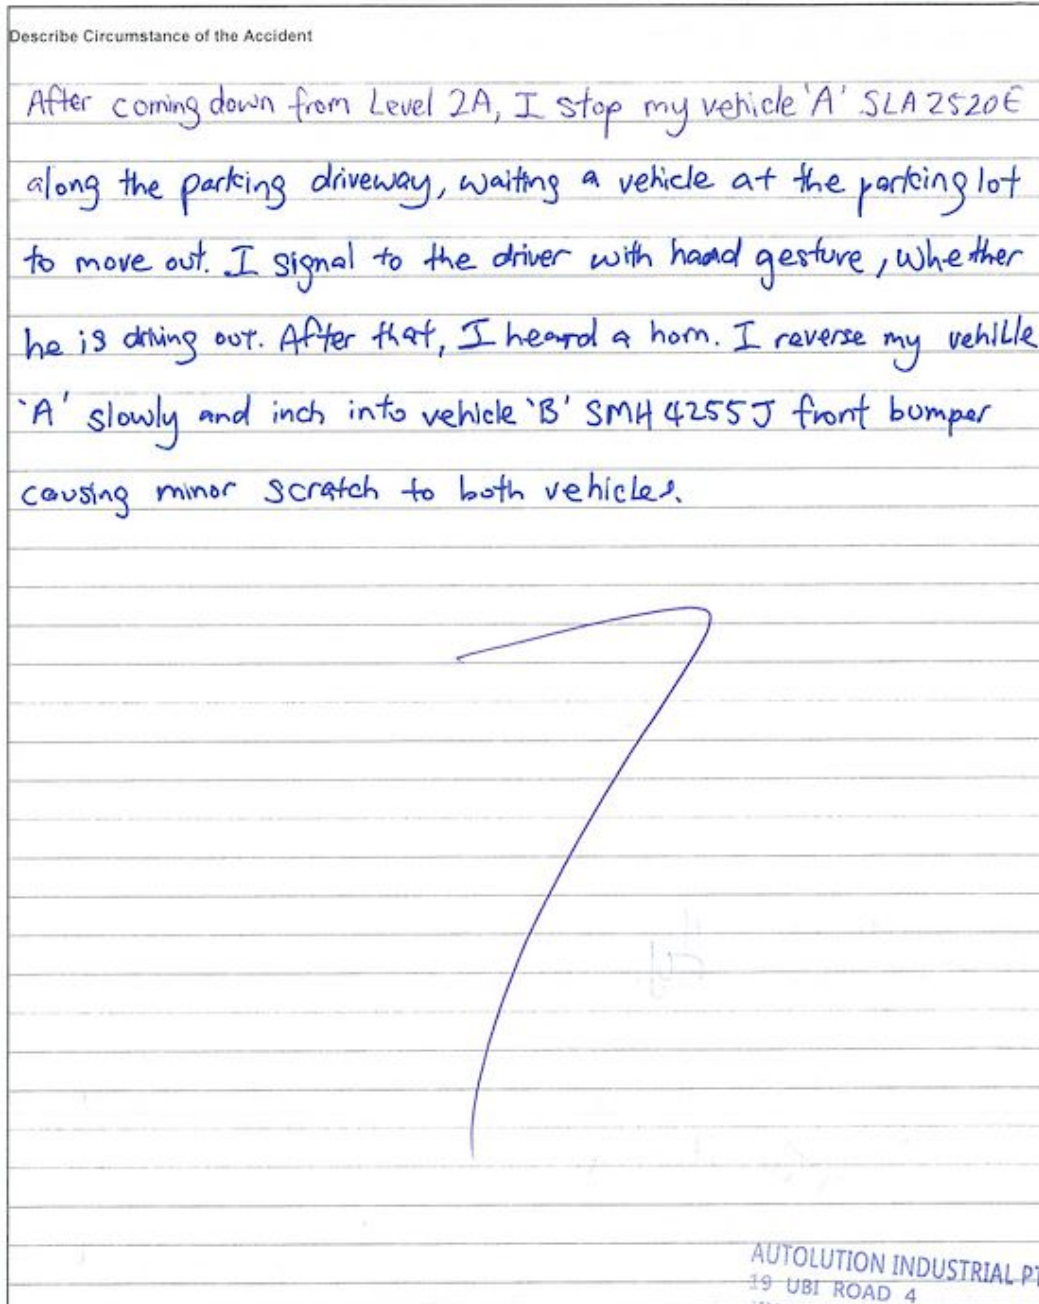 Describe Circumstance of the Accident
After coming down from Level 2A, I stop my vehicle 'A' SLA2520E
along the parking driveway, waiting a vehicle at the parking lot
to move out. I signal to the driver with hand gesture, whether
he is driving out. After that, I heard a horn. I reverse my vehicle
'A' slowly and inch into vehicle 'B' SMH4255J front bumper
causing minor scratch to both vehicles.
AUTOLUTION INDUSTRIAL PT
19 UBI ROAD 4